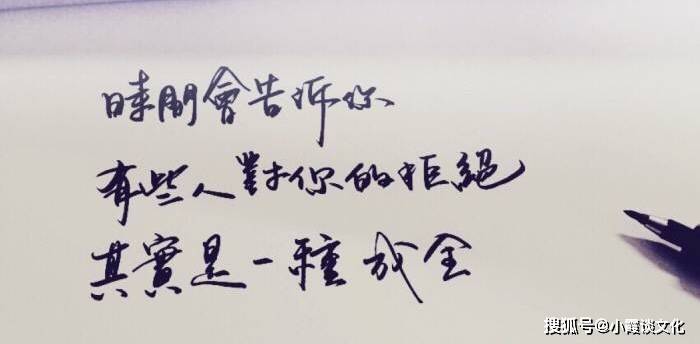 時間會告訴你
有些人對你的拒絕
其實是一種成全
搜狐号@小霞谈文化